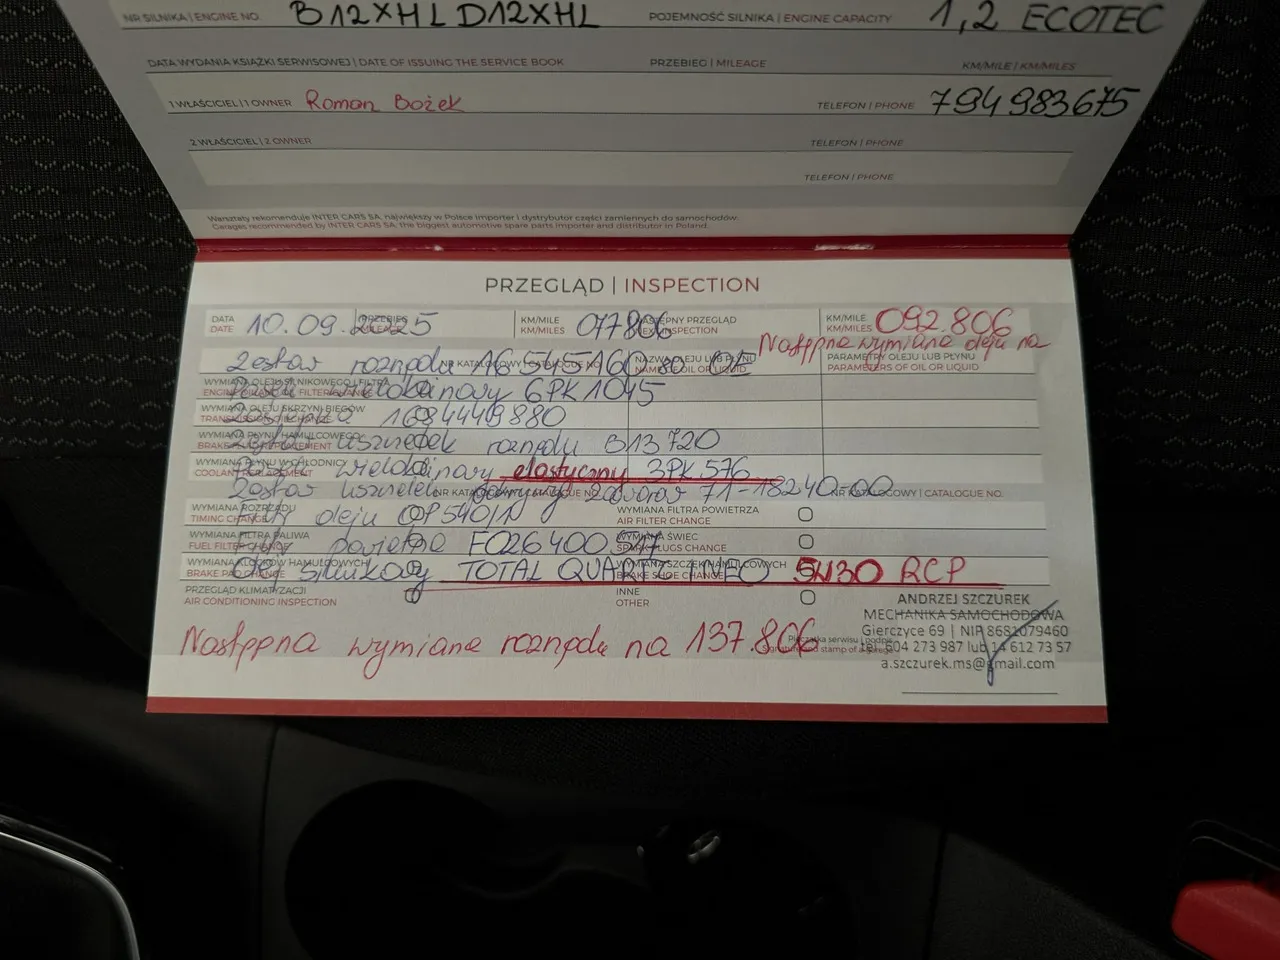 NR SILNIKA | ENGINE NO. B12XHL D12XHL POJEMNOŚĆ SILNIKA | ENGINE CAPACITY 1,2 ECOTEC
DATA WYDANIA KSIĄŻKI SERWISOWEJ | DATE OF ISSUING THE SERVICE BOOK PRZEBIEG | MILEAGE KM/MILE | KM/MILES
1 WŁAŚCICIEL | 1 OWNER Roman Bożek TELEFON | PHONE 794983675
2 WŁAŚCICIEL | 2 OWNER TELEFON | PHONE
TELEFON | PHONE
Warsztaty rekomenduje INTER CARS SA, największy w Polsce importer i dystrybutor części zamiennych do samochodów.
Garages recommended by INTER CARS SA, the biggest automotive spare parts importer and distributor in Poland.
PRZEGLĄD | INSPECTION
DATA DATE 10.09.2025 PRZEBIEG MILEAGE KM/MILE KM/MILES 077806 NASTĘPNY PRZEGLĄD NEXT INSPECTION KM/MILE KM/MILES 092.806
Następna wymiana oleju na
Zestaw rozrządu NR KATALOGOWY | CATALOGUE NO. NAZWA OLEJU LUB PŁYNU NAME OF OIL OR LIQUID PARAMETRY OLEJU LUB PŁYNU PARAMETERS OF OIL OR LIQUID
WYMIANA OLEJU SILNIKOWEGO I FILTRA
Pasek wielolinowy 6PK1045
WYMIANA OLEJU SKRZYNI BIEGÓW
TRANSMISSION OIL CHANGE 1684449880
WYMIANA PŁYNU HAMULCOWEGO
BRAKE FLUID REPLACEMENT uszczelek rozrządu B13720
WYMIANA PŁYNU W CHŁODNICY
COOLANT REPLACEMENT wielolinowy elastyczny 3PK576
Zestaw uszczelek NR KATALOGOWY | CATALOGUE NO. pokrywy zaworów 71-18240-00 NR KATALOGOWY | CATALOGUE NO.
WYMIANA ROZRZĄDU
TIMING CHANGE Filtr oleju OP540/N WYMIANA FILTRA POWIETRZA
AIR FILTER CHANGE
WYMIANA FILTRA PALIWA
FUEL FILTER CHANGE Filtr powietrza WYMIANA ŚWIEC
SPARK PLUGS CHANGE
WYMIANA KLOCKÓW HAMULCOWYCH
BRAKE PAD CHANGE Olej silnikowy TOTAL QUARTZ INEO 5W30 RCP WYMIANA SZCZĘK HAMULCOWYCH
BRAKE SHOE CHANGE
PRZEGLĄD KLIMATYZACJI
AIR CONDITIONING INSPECTION INNE
OTHER
ANDRZEJ SZCZUREK
MECHANIKA SAMOCHODOWA
Gierczyce 69 | NIP 8681079460
tel. 604 273 987 lub 14 612 73 57
a.szczurek.ms@gmail.com
Następna wymiana rozrządu na 137.806